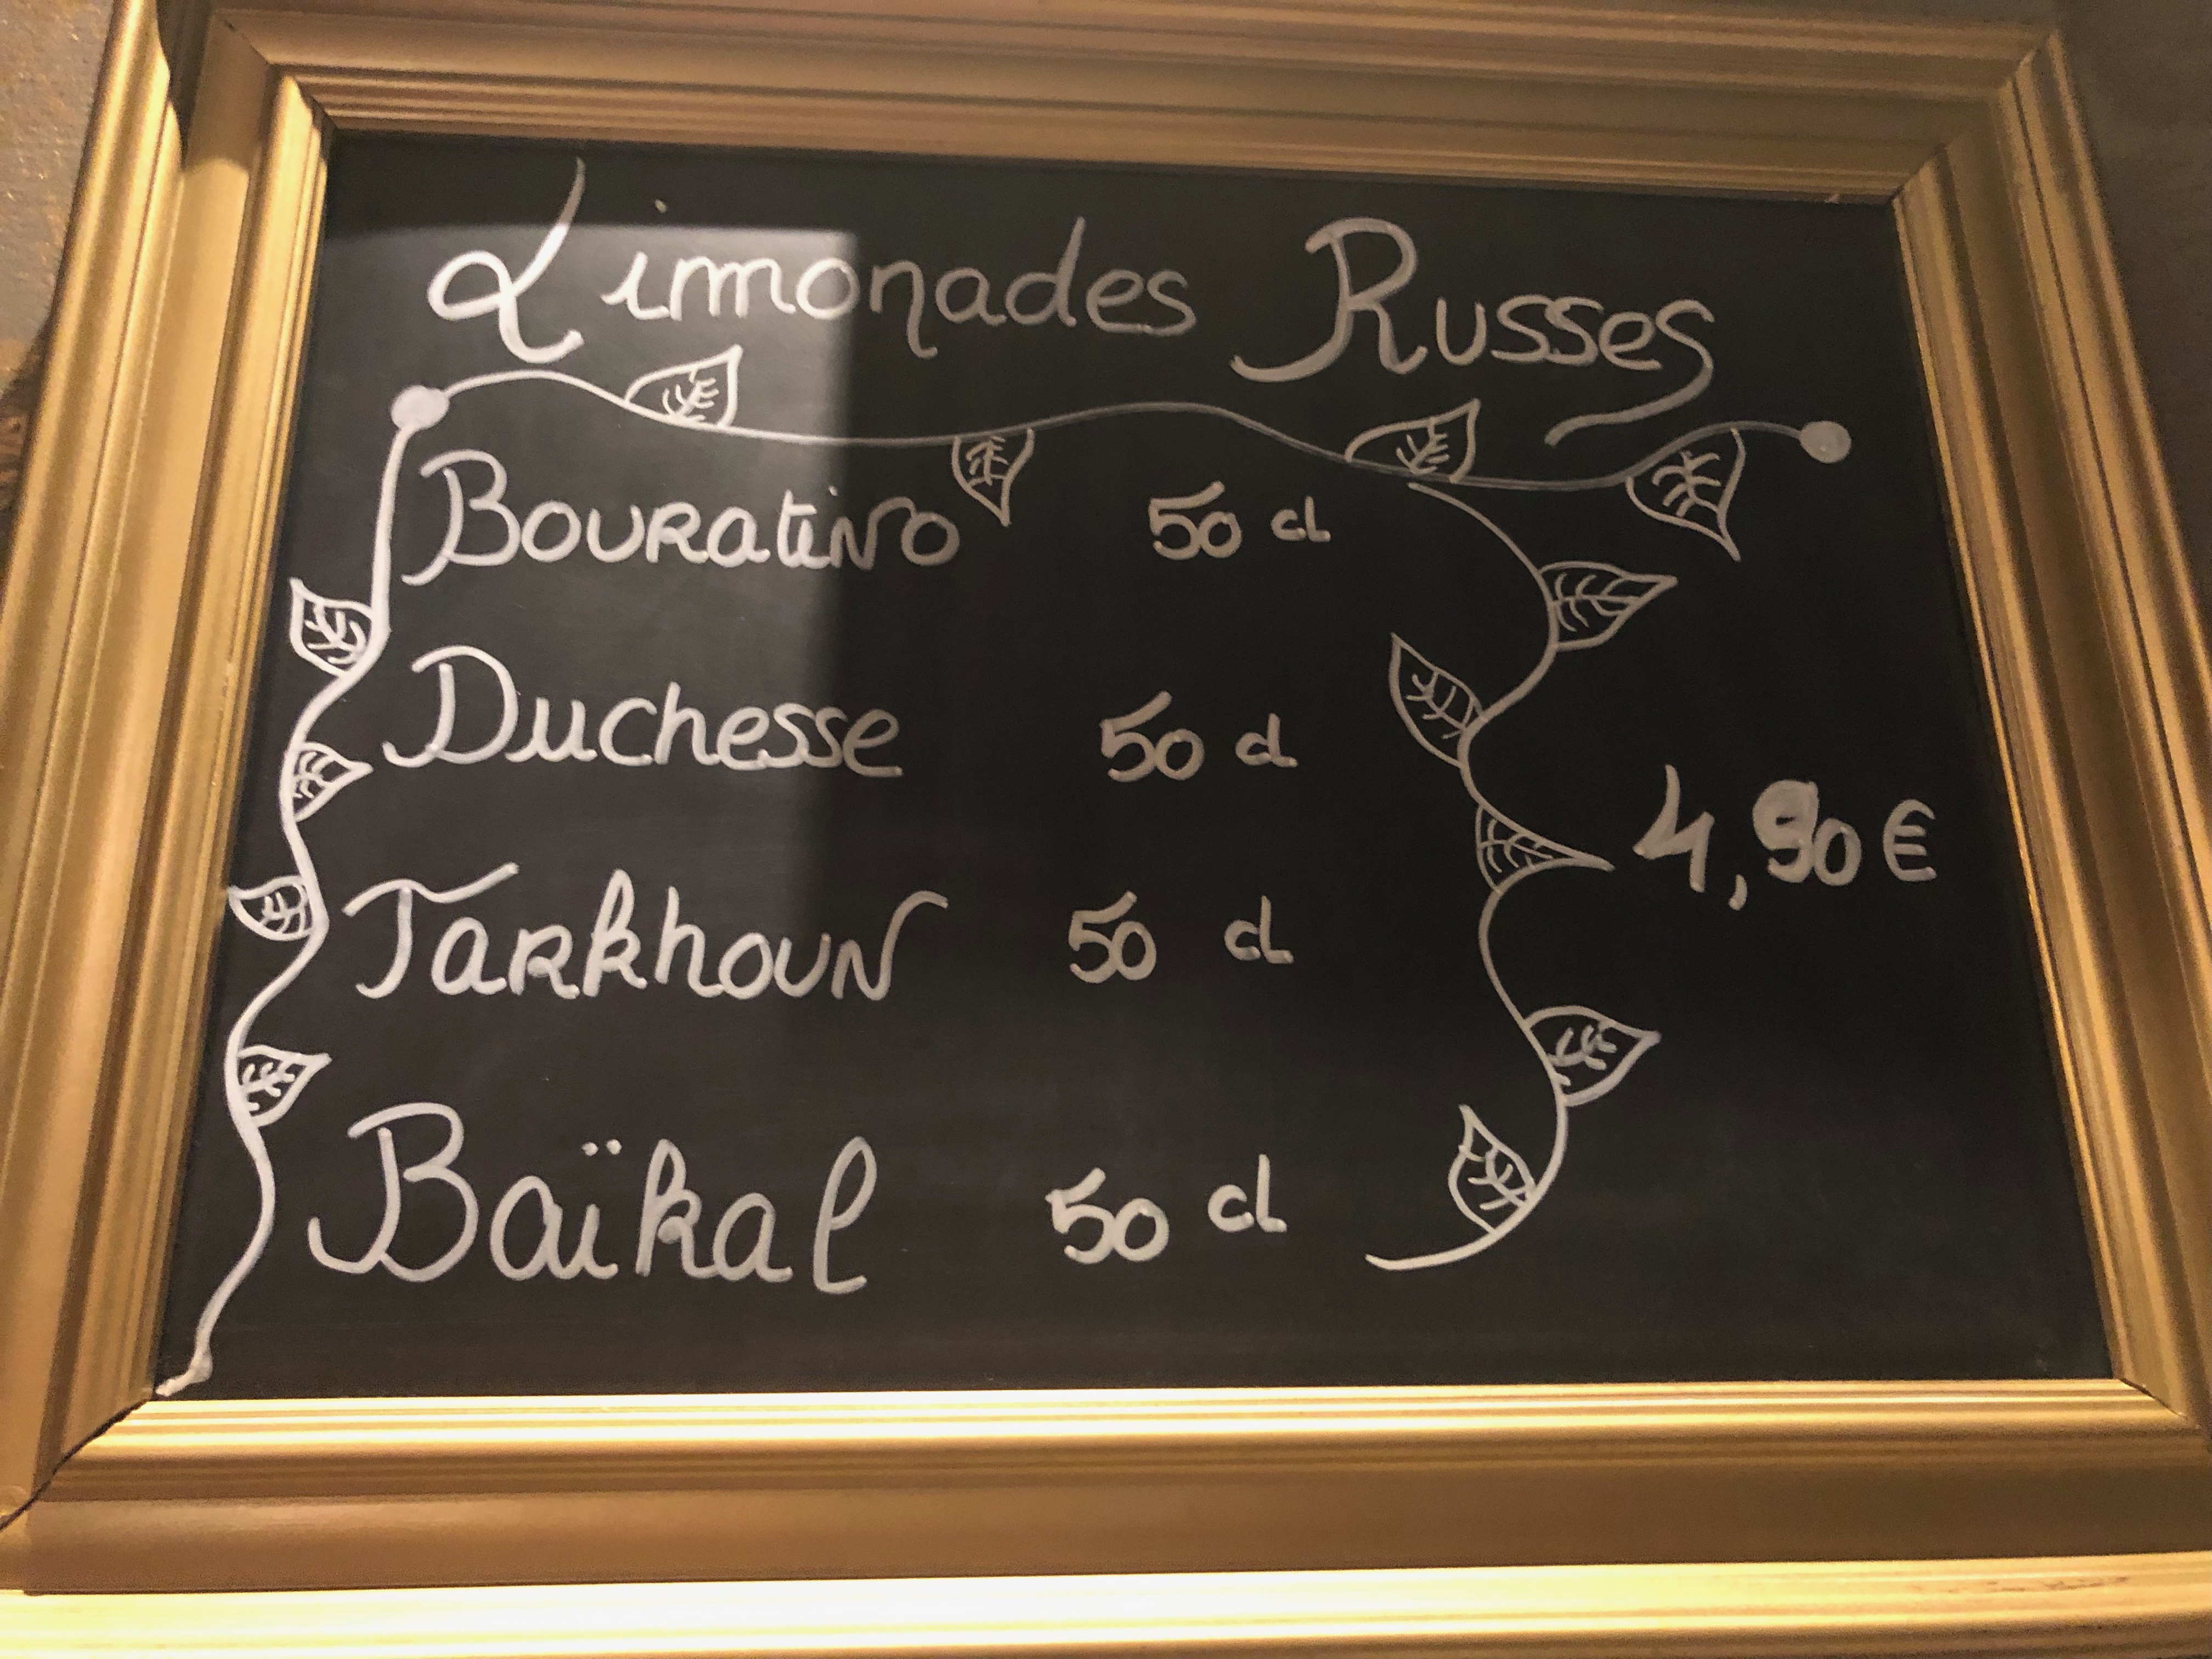 Limonades Russes
Bouratino 50 cl
Duchesse 50 cl
4,90€
Tarkhoun 50 cl
Baïkal 50 cl